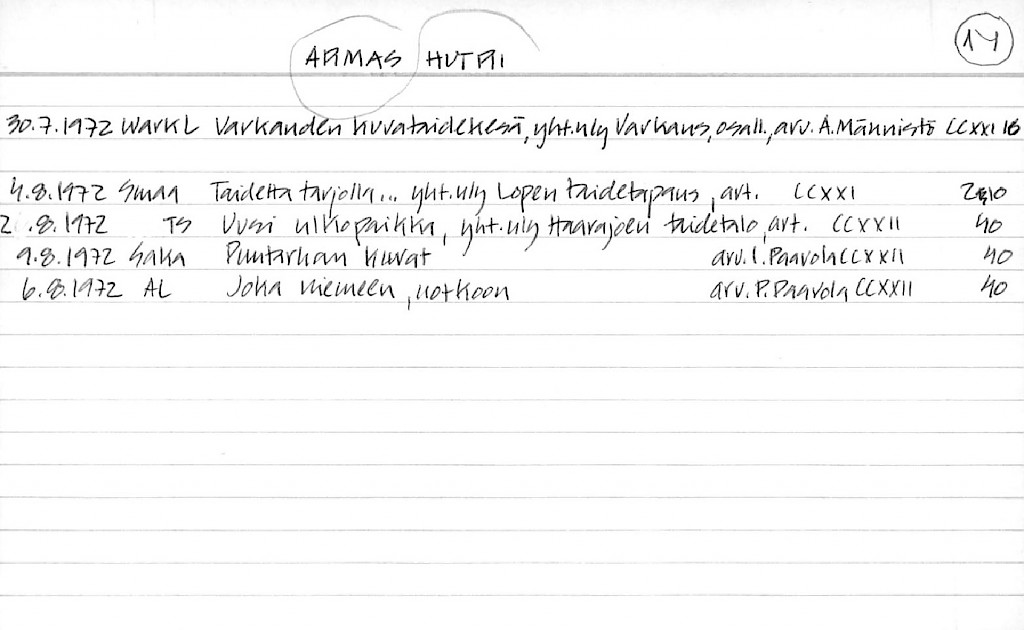 14
ARMAS HUTRI
30.7.1972 WARKL Varkauden kuvataidekesä, yht.näy Varkaus, osall., arv. A. Männistö CCXXI 18
4.8.1972 Smaa Taidetta tarjolla... yht.näy Lopen taidetapaus, art. CCXXI
2 .8.1972 TS Uusi ulkopaikka, yht.näy Haarajoen taidetalo, art. CCXXII 40
9.8.1972 SaKa Puutarhan kuvat arv. I. Paavola CCXXII 40
6.8.1972 AL Joka kiemeen, uotkoon arv. P. Paavola CCXXII 40